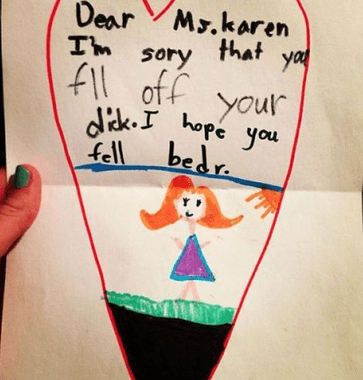 Dear Ms. karen
I'm sory that you
fll off your
dick. I hope you
fell bedr.